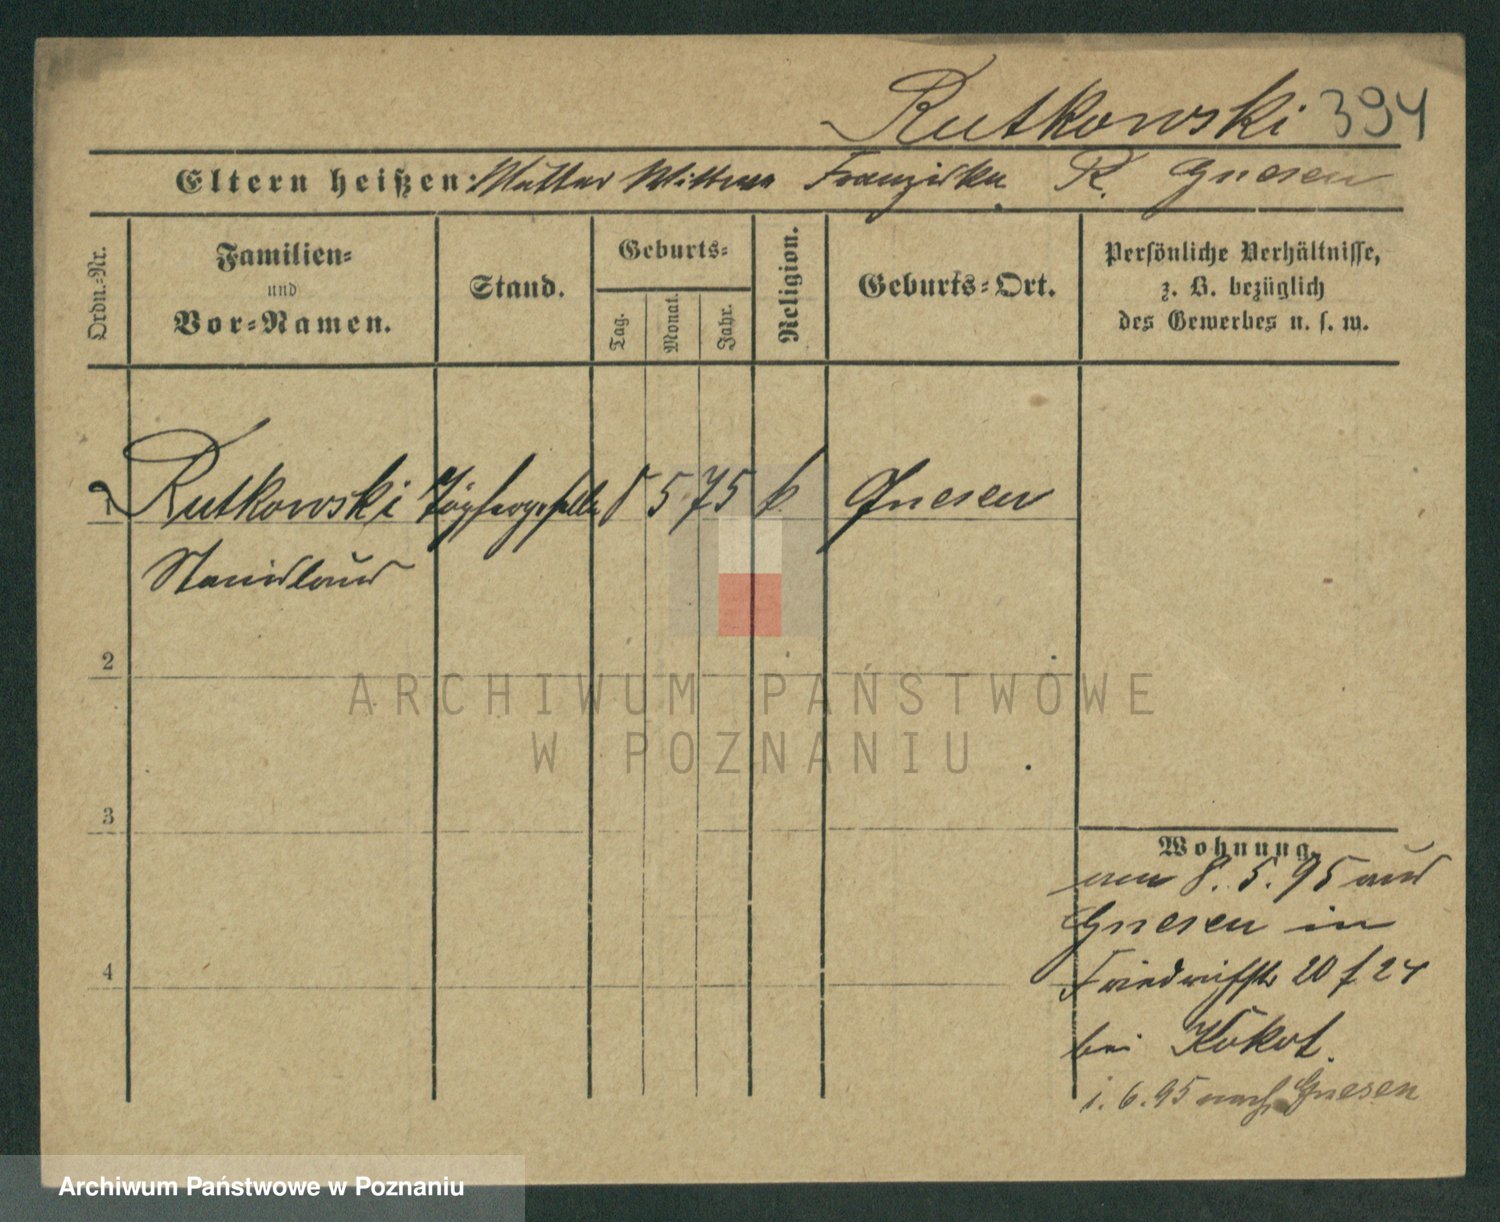 Rutkowski 394
Eltern heißen: Mutter Wittwe Franziska R. Gnesen
Ordn.-Nr.
Familien-
und
Vor-Namen.
Stand.
Geburts-
Tag.
Monat.
Jahr.
Religion.
Geburts-Ort.
Persönliche Verhältnisse,
z. B. bezüglich
des Gewerbes u. s. w.
1 Rutkowski Töpfergeselle 8 5 75 k. Gnesen
Stanislaus
2
3
4
Wohnung.
am 8. 5. 95 aus
Gnesen in
Friedrichstr 20 f 24
bei Kokot.
i. 6. 95 nach Gnesen
ARCHIWUM PAŃSTWOWE
W POZNANIU
Archiwum Państwowe w Poznaniu